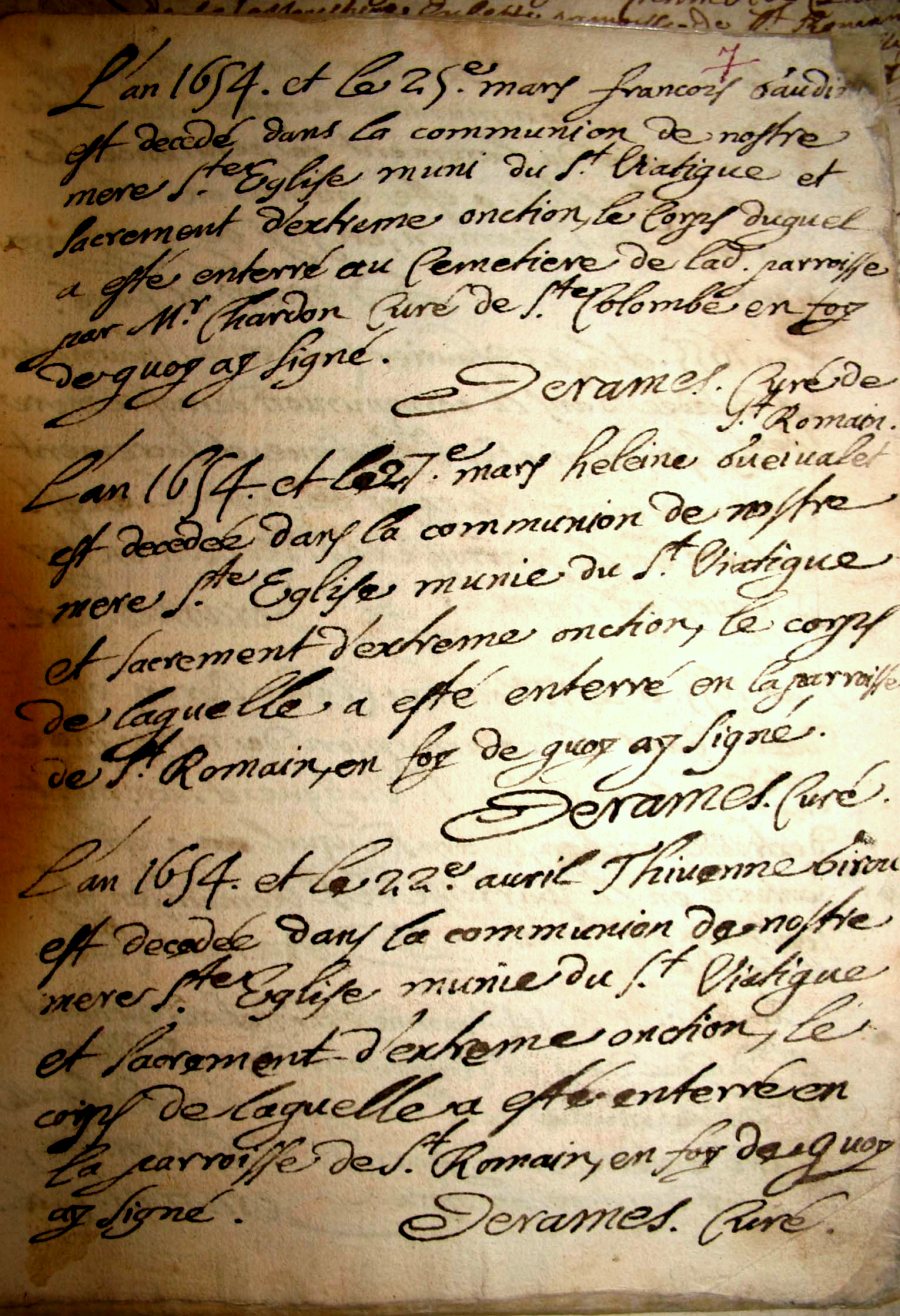 de St Romain
7
L'an 1654. et le 25e. mars francois
est decedé dans la communion de nostre
mere Ste Eglise muni du St Viatique et
sacrement d'extreme onction, le corps duquel
a esté enterré au Cemetiere de lad. parroisse
par Mr Chardon Curé de Ste Colombe en foy
de quoy ay signé.
Derames. Curé de
St Romain.
L'an 1654. et le 27e. mars heleine
est decedeé dans la communion de nostre
mere Ste Eglise munie du St Viatique
et sacrement d'extreme onction, le corps
de laquelle a esté enterré en la parroisse
de St Romain, en foy de quoy ay signé.
Derames. Curé.
L'an 1654. et le 22e. auril Thiuenne
est decedeé dans la communion de nostre
mere Ste Eglise munie du St Viatique
et sacrement d'extreme onction, le
corps de laquelle a esté enterré en
la parroisse de St Romain, en foy de quoy
ay signé.
Derames. Curé.